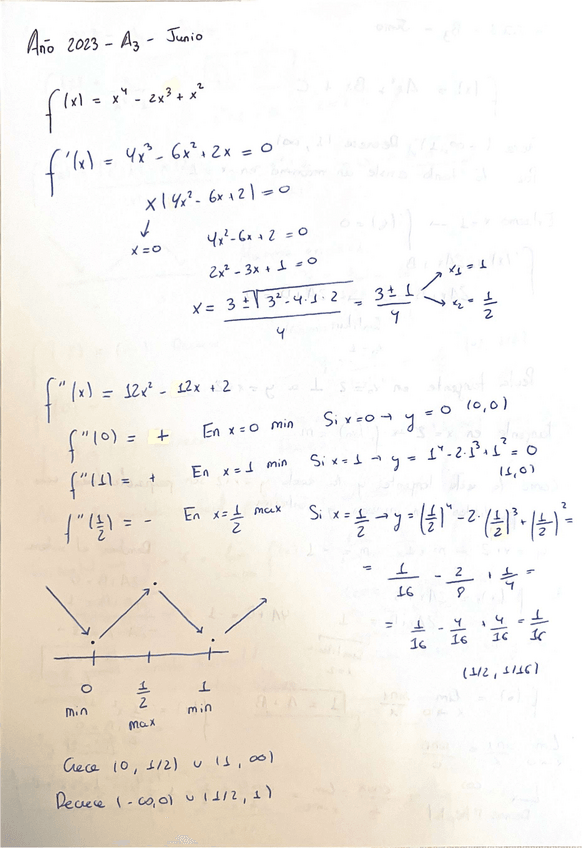 Año 2023 - A3 - Junio
f(x) = x⁴ - 2x³ + x²
f'(x) = 4x³ - 6x² + 2x = 0
x(4x² - 6x + 2) = 0
↓
x=0
4x² - 6x + 2 = 0
2x² - 3x + 1 = 0
x = (3 ± √(3² - 4·1·2))/4 = (3 ± 1)/4
x₁ = 1
x₂ = 1/2
f''(x) = 12x² - 12x + 2
f''(0) = + En x=0 min Si x=0 → y = 0 (0,0)
f''(1) = + En x=1 min Si x=1 → y = 1⁴ - 2·1³ + 1² = 0
(1,0)
f''(1/2) = - En x=1/2 max Si x=1/2 → y = (1/2)⁴ - 2·(1/2)³ + (1/2)² =
= 1/16 - 2/8 + 1/4 =
= 1/16 - 4/16 + 4/16 = 1/16
(1/2, 1/16)
0 1/2 1
min max min
Crece (0, 1/2) ∪ (1, ∞)
Decrece (-∞,0) ∪ (1/2, 1)